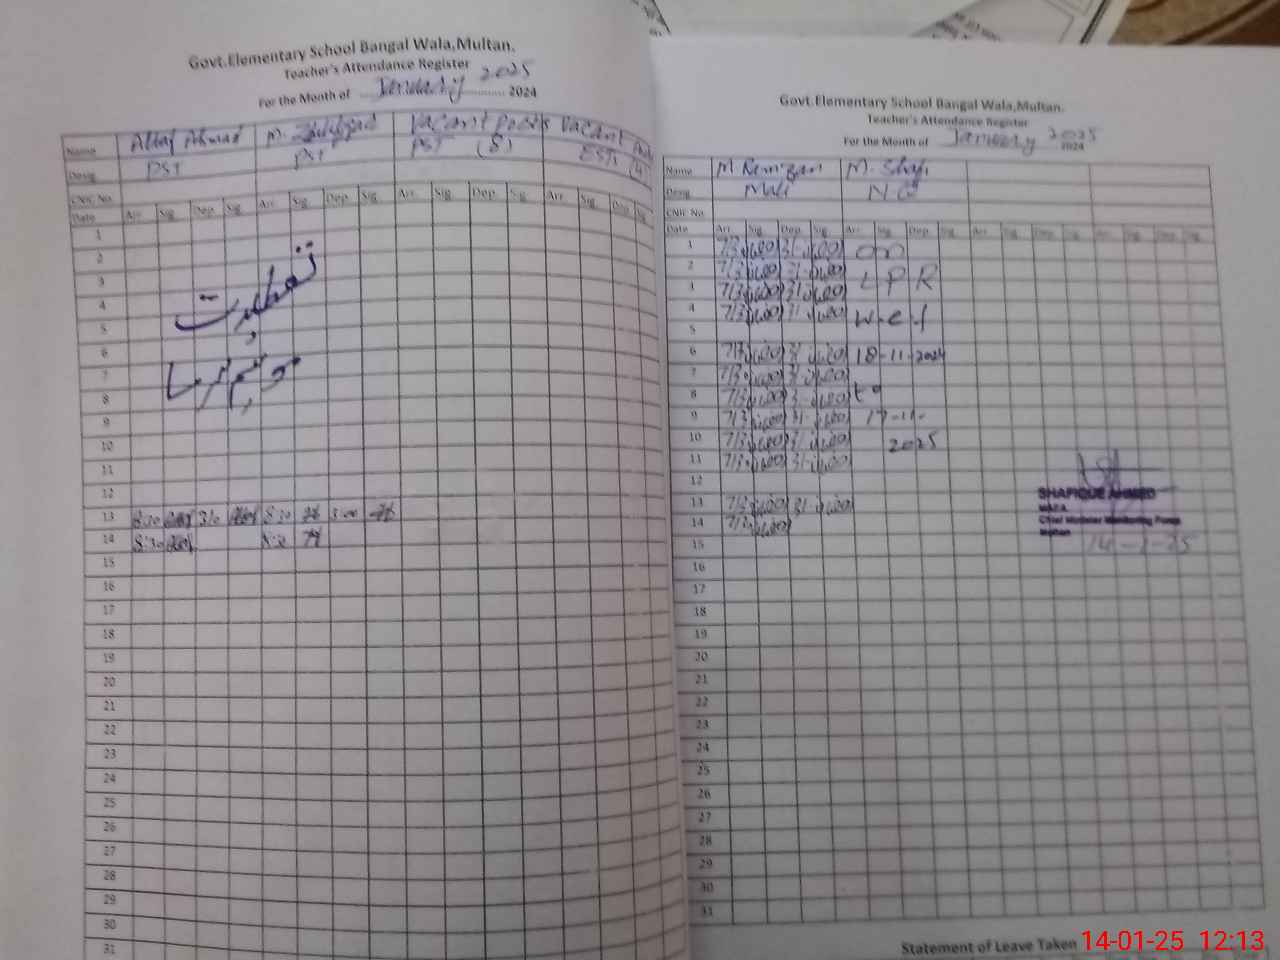 Govt.Elementary School Bangal Wala,Multan.
Teacher's Attendance Register
For the Month of January 2025 2024
Name Altaf Ahmad M. Vacant Posts Vacant
Desig. PST PST PST (8) EST
CNIC No.
Date Arr. Sig. Dep. Sig. Arr. Sig. Dep. Sig. Arr. Sig. Dep. Sig. Arr. Sig. Dep. Sig.
1
2
3
تعطیلات
4
5
6
7
موسم سرما
8
9
10
11
12
13 8:30 3:0 8:30 3:00
14 8:30 8:30
15
16
17
18
19
20
21
22
23
24
25
26
27
28
29
30
31
Govt.Elementary School Bangal Wala,Multan.
Teacher's Attendance Register
For the Month of January 2025 2024
Name M. Ramzan M. Shafi
Desig. Mali N.Q
CNIC No.
Date Arr. Sig. Dep. Sig. Arr. Sig. Dep. Sig. Arr. Sig. Dep. Sig. Arr. Sig. Dep. Sig.
1 on
2
3 LPR
4 w.e.f
5
6 18-11-2024
7
8 to
9 17-11-
10 2025
11
12
13
14
15
16
17
18
19
20
21
22
23
24
25
26
27
28
29
30
31
SHAFIQUE AHMED
M.E.A
Chief Minister Monitoring Force
Multan
14-1-25
Statement of Leave Taken
14-01-25 12:13